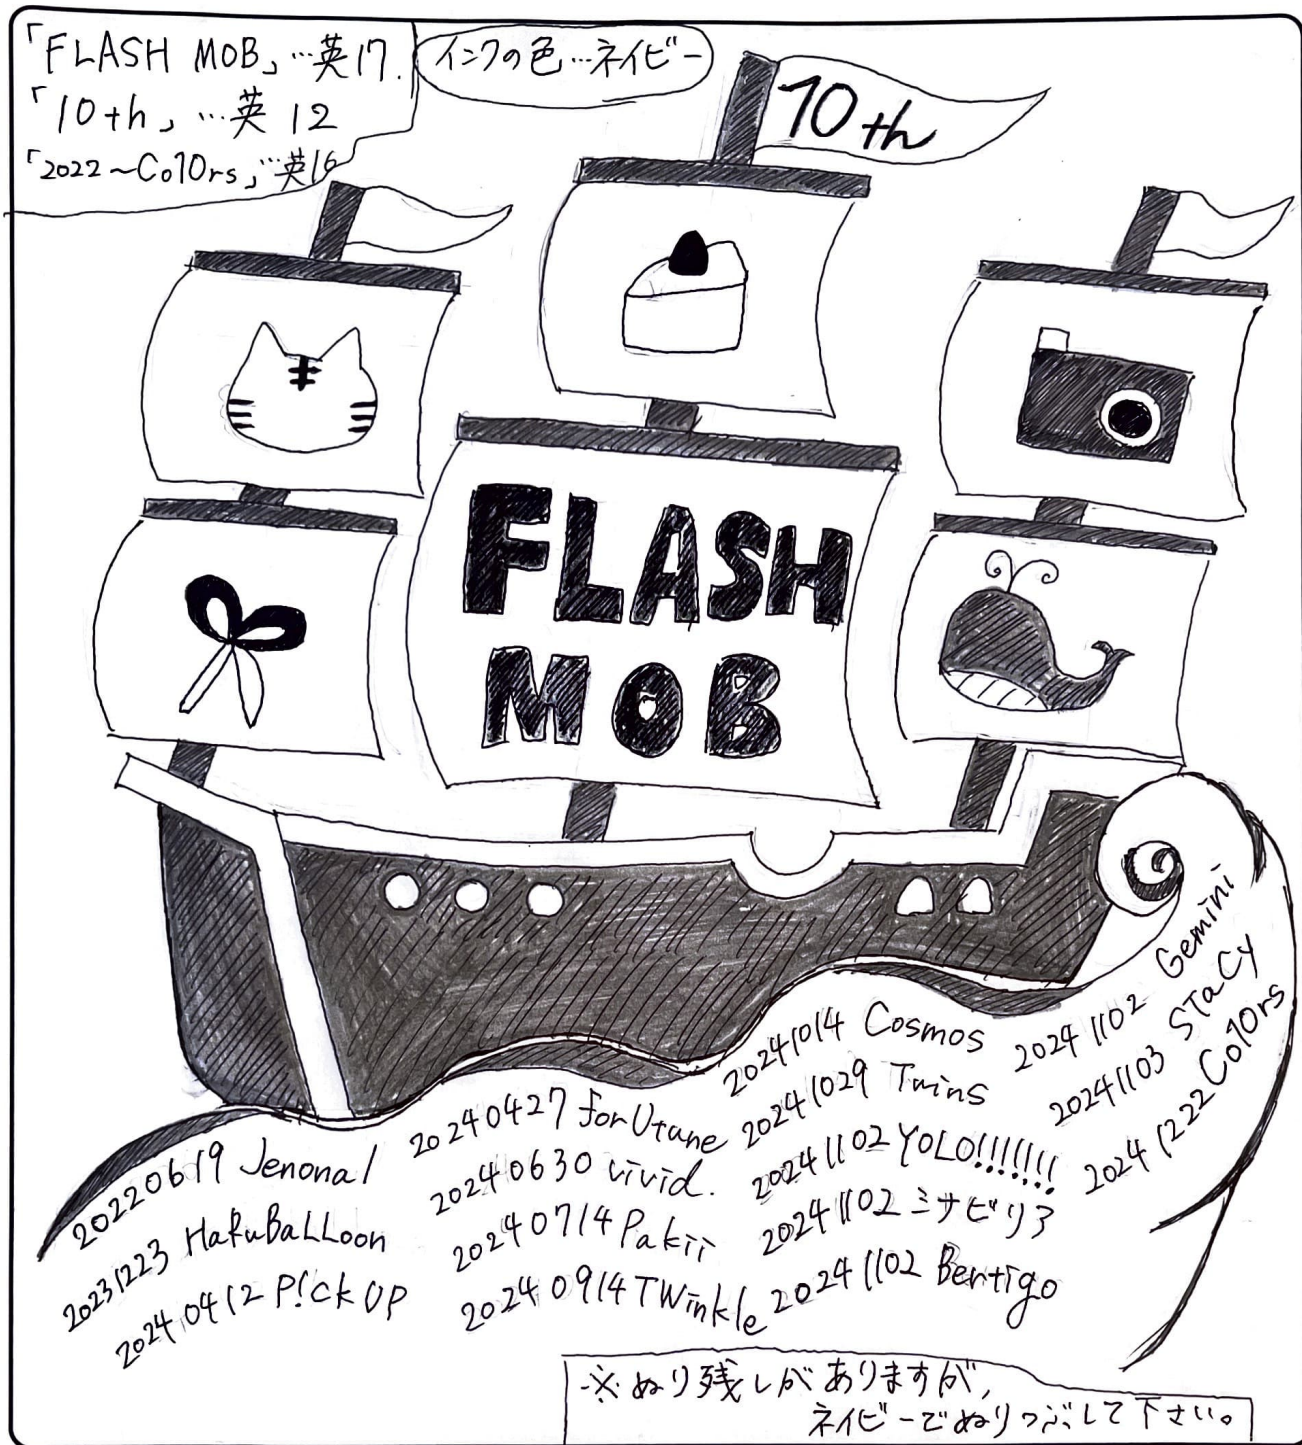 「FLASH MOB」…英17.
「10th」…英12
「2022～Co10rs」…英16
インクの色…ネイビー
10th
FLASH
MOB
20220619 Jenonal
20231223 HaRuBaLLoon
20240412 P!ckUP
20240427 forUtane
20240630 vivid.
20240714 Pakii
20240914 TWinkle
20241014 Cosmos
20241029 Twins
20241102 YOLO!!!!!!!
20241102 ミナビリア
20241102 Bertigo
20241102 Gemini
20241103 STaCy
20241222 Co10rs
※ぬり残しがありますが、
ネイビーでぬりつぶして下さい。